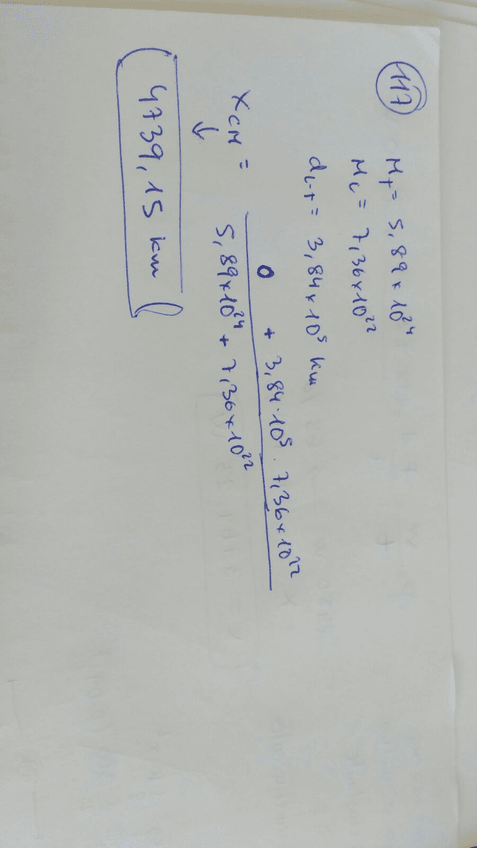 117
M_T = 5,89 x 10^24
M_L = 7,36x10^22
d_L-T = 3,84x10^5 km
0 + 3,84·10^5 · 7,36x10^22
X_CM =
5,89x10^24 + 7,36x10^22
↓
4739,15 km